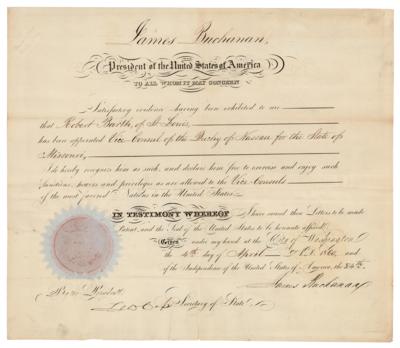 James Buchanan,
President of the United States of America
TO ALL WHOM IT MAY CONCERN
Satisfactory evidence having been exhibited to me
that Robert Barth, of St Louis,
has been appointed Vice Consul of the Duchy of Nassau for the State of
Missouri,
I do hereby recognize him as such, and declare him free to exercise and enjoy such
functions, powers and privileges as are allowed to the Vice Consuls
of the most favored Nations in the United States.
IN TESTIMONY WHEREOF I have caused these Letters to be made
Patent, and the Seal of the United States to be hereunto affixed.
Given under my hand at the City of Washington
the 4th day of April A.D. 1860 and
of the Independence of the United States of America, the 84th.
James Buchanan
By the President
Lew Cass Secretary of State